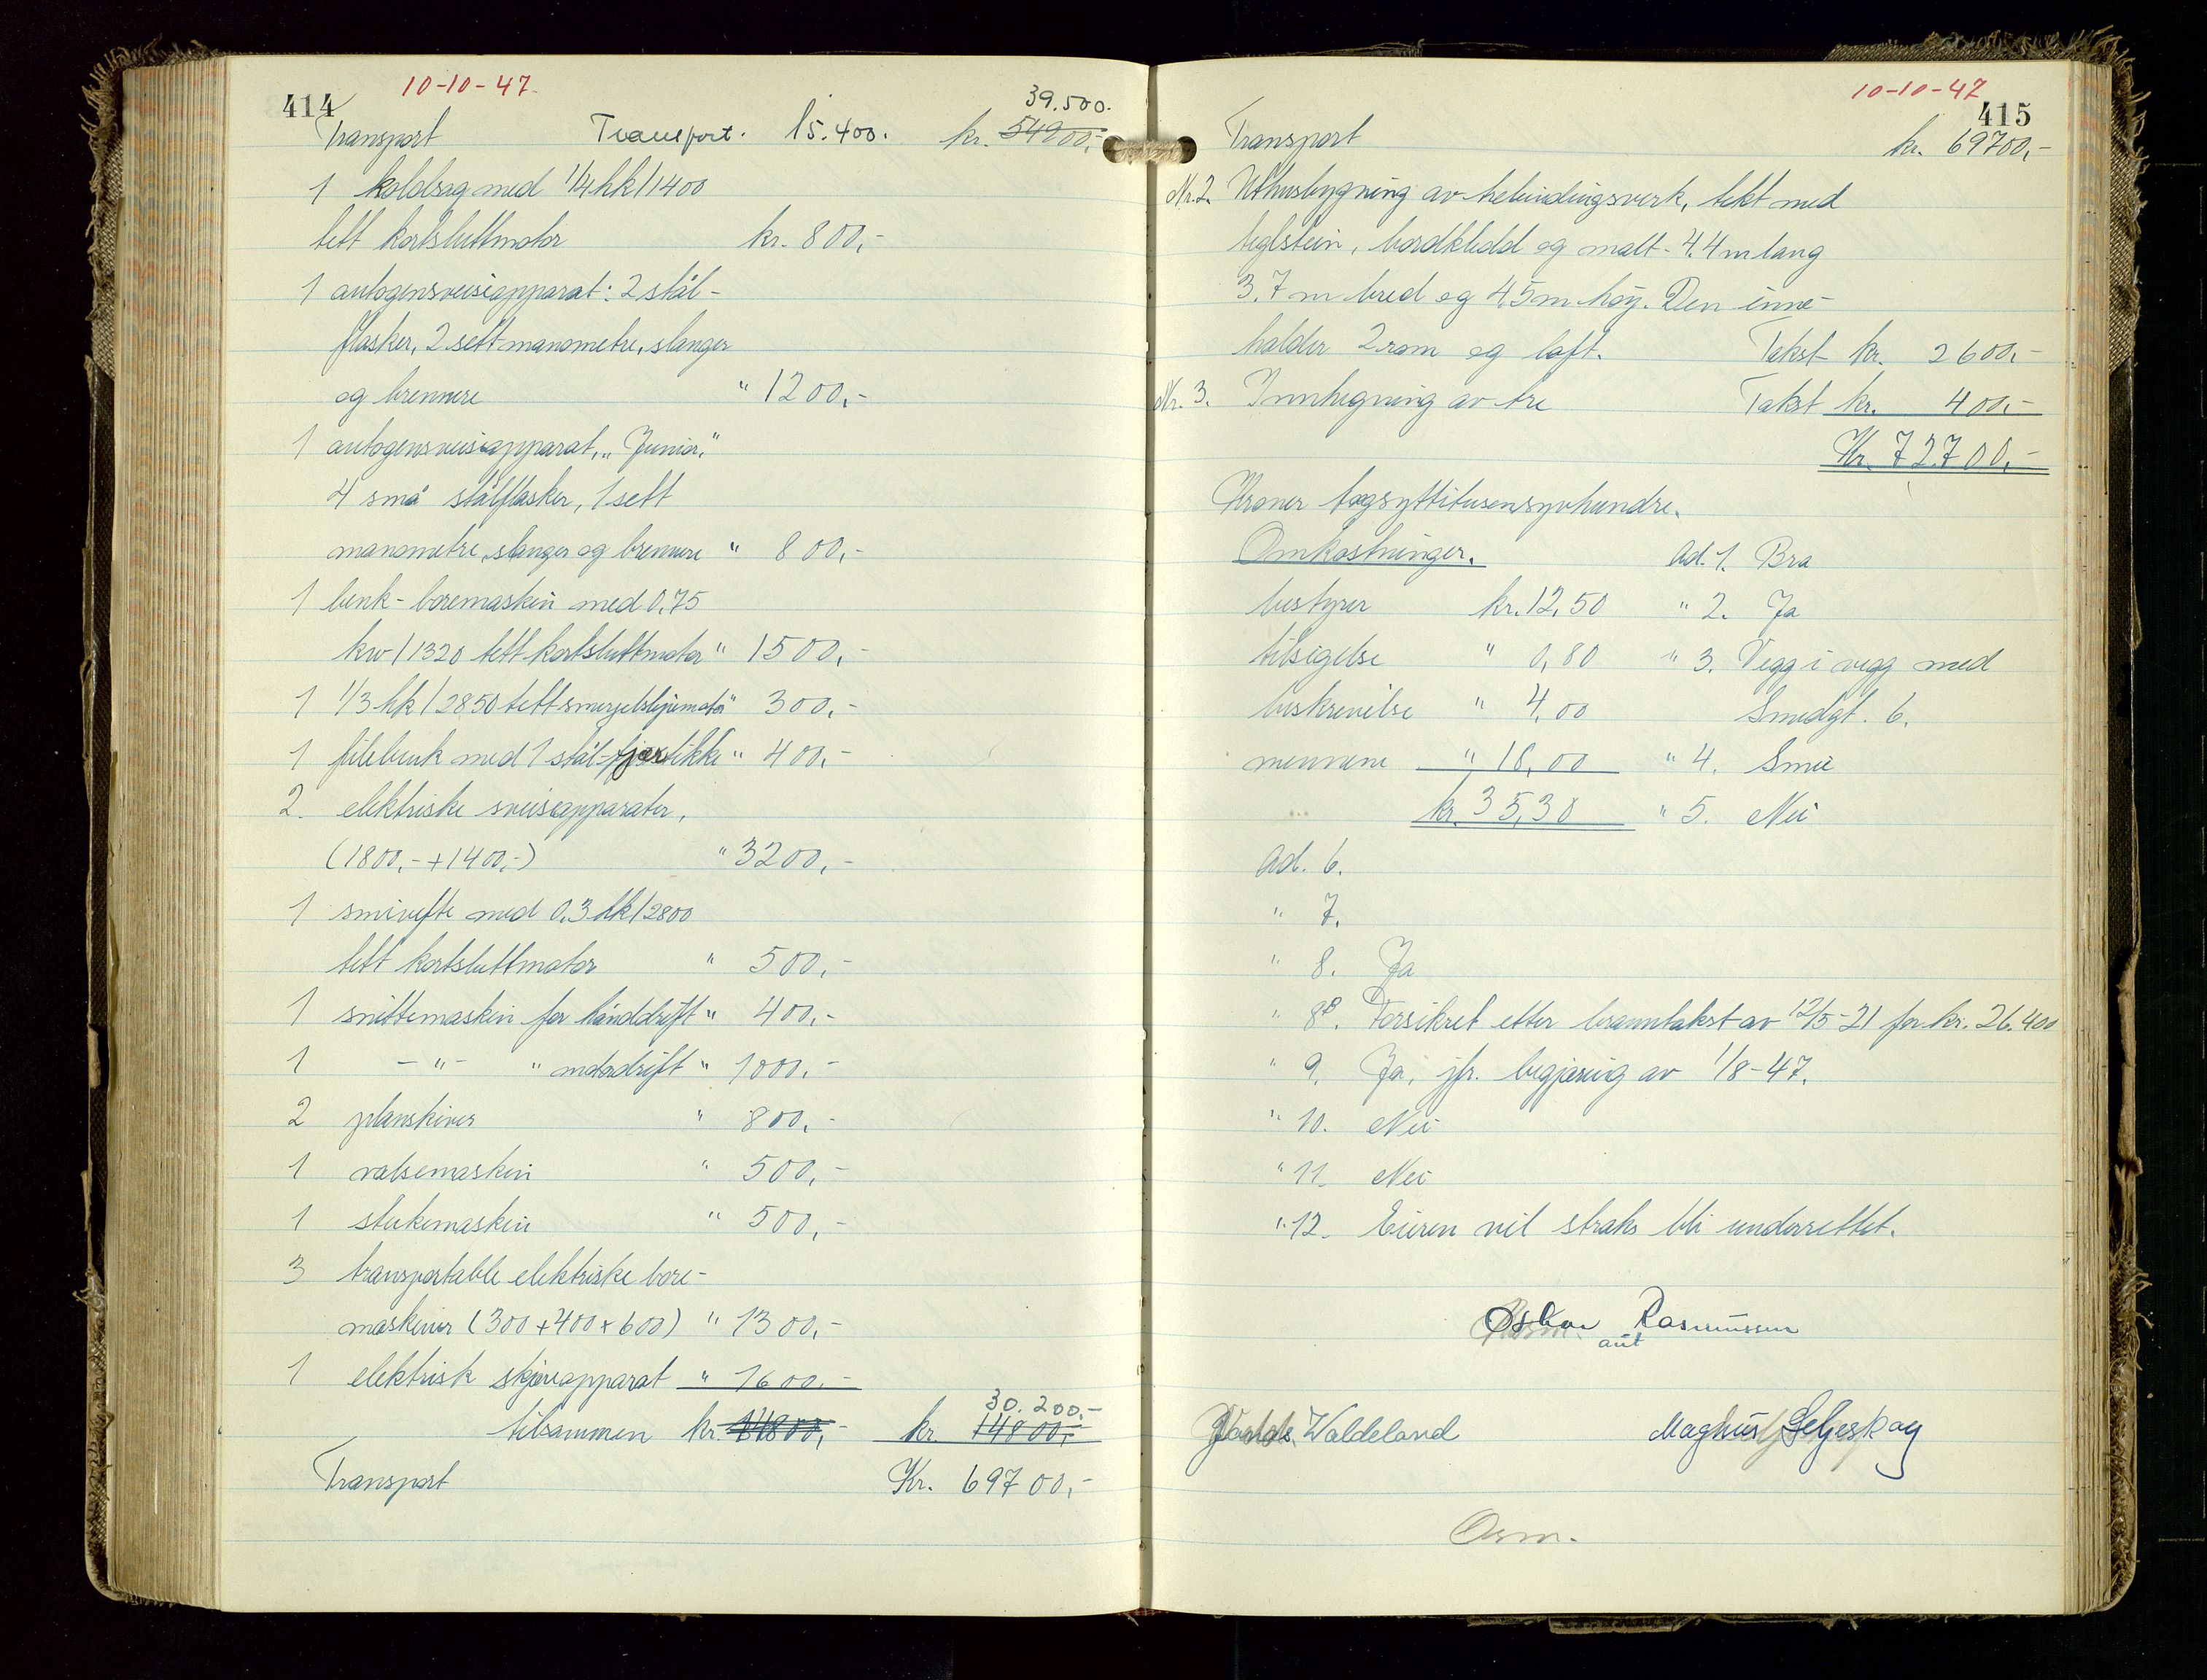 10-10-47.
414
39.500.
Transport Transport. 15.400. kr. 54900,-
1 koldsag med 1/4 hk/1400
tett kortsluttmotor kr. 800,-
1 autogensveiseapparat: 2 stål-
flasker, 2 sett manometre, slanger
og brennere " 1200,-
1 autogensveiseapparat, "Junior"
4 små stålflasker, 1 sett
manometre, slanger og brennere " 800,-
1 benk-boremaskin med 0,75
kw/1320 tett kortsluttmotor " 1500,-
1 1/3 hk/2850 tett smergelslipemotor " 300,-
1 filebenk med 1 stål- " 400,-
2. elektriske sveiseapparater,
(1800,- + 1400,-) " 3200,-
1 smivifte med 0,3 hk/2800
tett kortsluttmotor " 500,-
1 snittemaskin for hånddrift " 400,-
1 - " - " motordrift " 1000,-
2 planskiver " 800,-
1 valsemaskin " 500,-
1 stukemaskin " 500,-
3 transportable elektriske bore-
maskiner (300 + 400 + 600) " 1300,-
1 elektrisk skjæreapparat " 1600.-
30.200,-
tilsammen kr. 14800,- kr. 14800,-
Transport Kr. 69700,-
10-10-47
415
Transport kr. 69700,-
Nr. 2. Uthusbygning av trebindingsverk, tekt med
teglstein, bordkledd og malt. 4.4 m lang
3.7 m bred og 4,5 m høy. Den inne-
holder 2 rom og loft. Takst kr. 2600,-
Nr. 3. Innhegning av tre Takst kr. 400,-
Kr. 72700,-
Kroner togsyttitusensyvhundre.
Omkostninger. Ad. 1. Bra
bestyrer kr. 12,50 " 2. Ja
tilsigelse " 0,80 " 3. Vegg i vegg med
beskrivelse " 4,00 Smedgt. 6.
mennene " 18,00 " 4. Smie
kr. 35,30 " 5. Nei
Ad. 6.
" 7.
" 8. Ja
" 8a. Forsikret etter branntakst av 12/5-21 for kr. 26.400
" 9. Ja, jfr. begjæring av 1/8-47.
" 10. Nei
" 11. Nei
" 12. Eieren vil straks bli underrettet.
Oskar Rasmussen
aut
Waldeland Magnus Seljeskog
Osm.